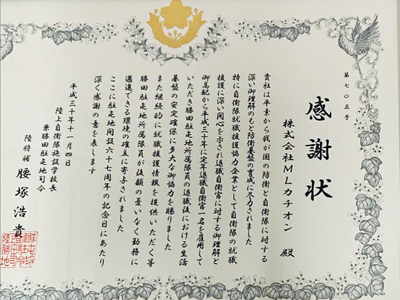 第七〇五号
感謝状
株式会社MLカチオン 殿
貴社は平素から我が国の防衛と自衛隊に対する
深い御理解のもと防衛基盤の育成に尽力されました
特に自衛隊就職援護協力企業として自衛隊の就職
援護に深い関心を示され退職自衛官に対する御理解と
御高配から平成三十年に定年退職自衛官一名を雇用して
いただき勝田駐屯地所属隊員の退職後における生活
基盤の安定確保に多大な御協力を賜りました
また継続的に就職援護情報を提供いただく等
勝田駐屯地所属隊員が後顧の憂いなく勤務に
邁進できる環境の確立に寄与されました
ここに駐屯地開設六十七周年の記念日にあたり
深く感謝の意を表します
平成三十年十一月四日
陸上自衛隊施設学校長
兼勝田駐屯地司令
陸将補 腰塚浩貴